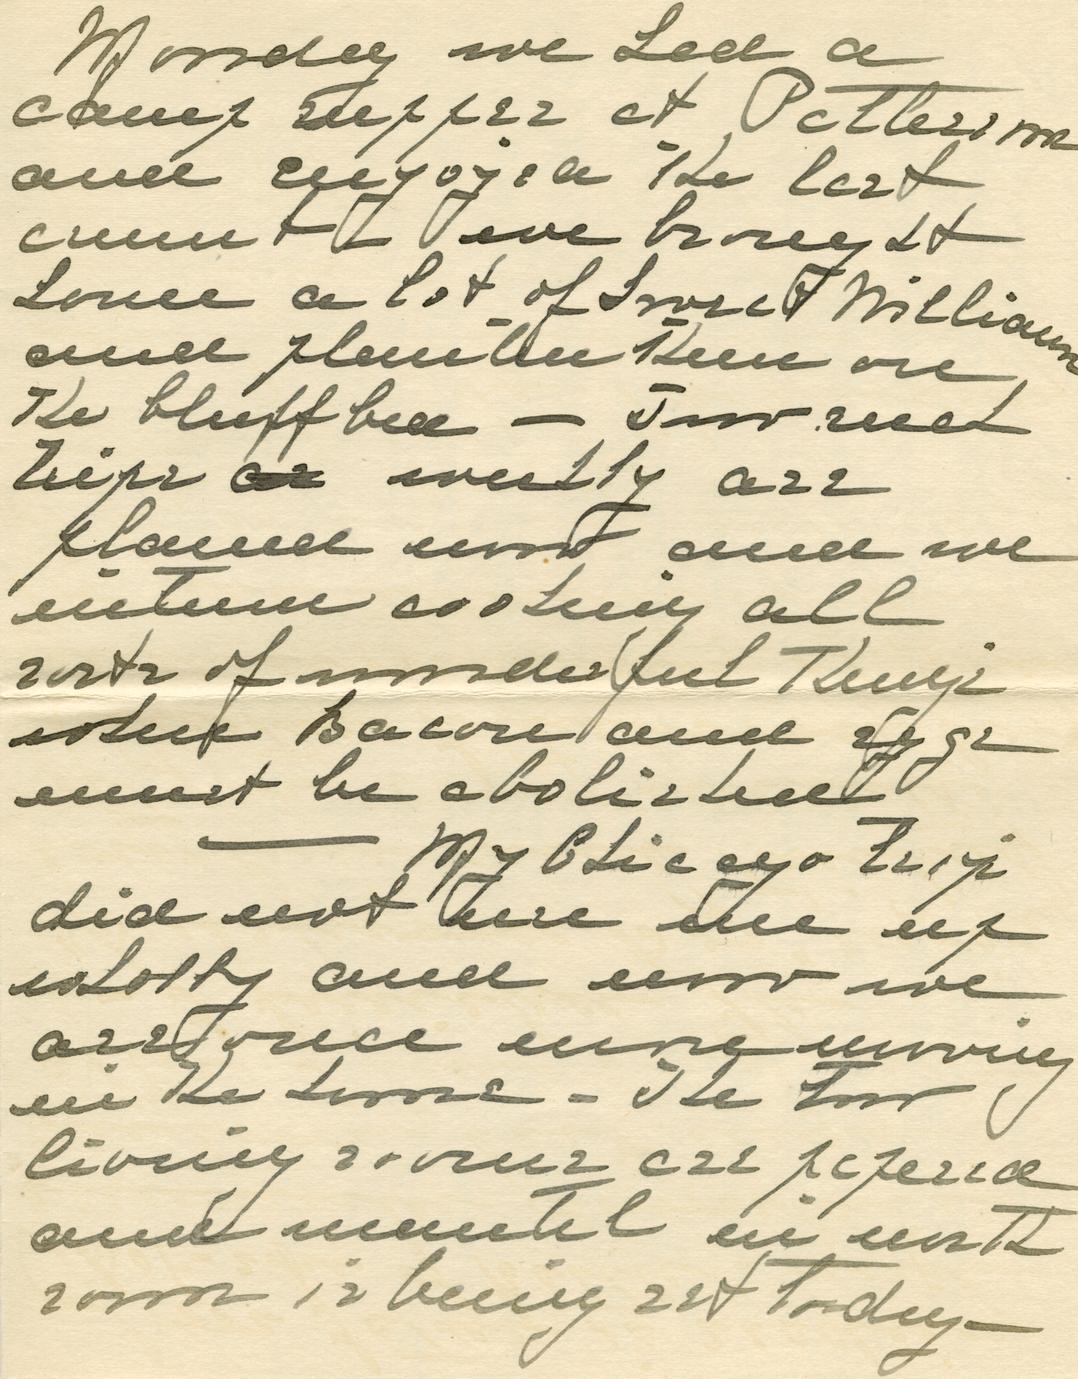 Monday we had a
camp supper at Patterson
and enjoyed the last
we brought
home a lot of Sweet Williams
and planted them on
the bluff bed — Two such
trips weekly are
planned now and we
intend cooking all
sorts of wonderful things
when Bacon and eggs
must be abolished
— My Chicago trip
did not use me up
wholly and now we
are once more moving
in the house - The two
living rooms are papered
and mantel in north
room is being set today —